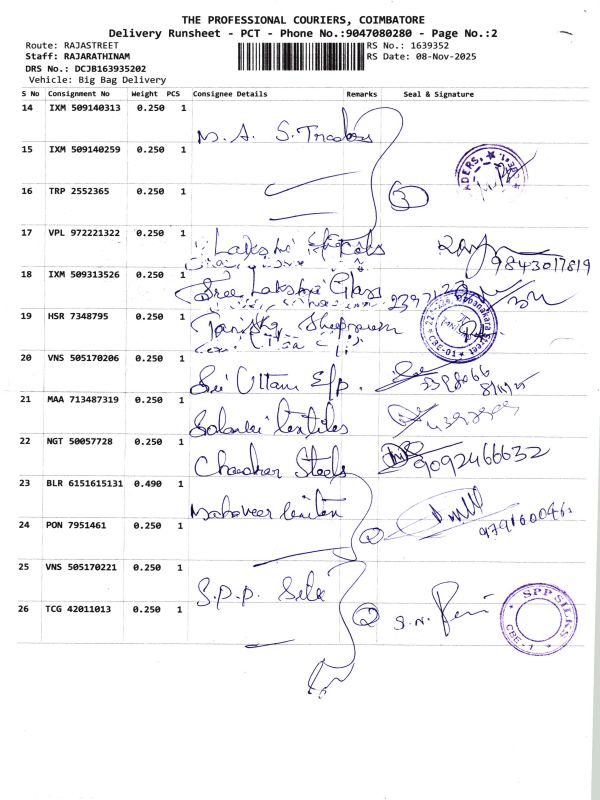 THE PROFESSIONAL COURIERS, COIMBATORE
Delivery Runsheet - PCT - Phone No.:9047080280 - Page No.:2
Route: RAJASTREET
Staff: RAJARATHINAM
DRS No.: DCJB163935202
Vehicle: Big Bag Delivery
RS No.: 1639352
RS Date: 08-Nov-2025
S No Consignment No Weight PCS Consignee Details Remarks Seal & Signature
14 IXM 509140313 0.250 1
M. A. S. Traders
15 IXM 509140259 0.250 1
16 TRP 2552365 0.250 1
3
17 VPL 972221322 0.250 1
Lakshmi
9843017819
18 IXM 509313526 0.250 1
Sree Lakshmi Glass
19 HSR 7348795 0.250 1
20 VNS 505170206 0.250 1
Sri Uttam
8/11/25
21 MAA 713487319 0.250 1
Textiles
22 NGT 50057728 0.250 1
Chandran Steels
9092466632
23 BLR 6151615131 0.490 1
Mahaveer
24 PON 7951461 0.250 1
2
25 VNS 505170221 0.250 1
S.P.P. Silk
26 TCG 42011013 0.250 1
2
SPP SILKS
CBE-1